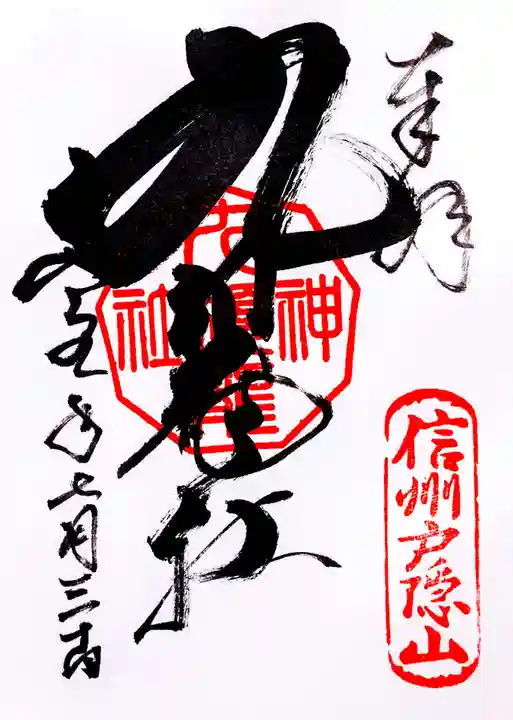 奉拝
信州戸隠山
九頭龍社
九頭龍
神社
元年七月三十日